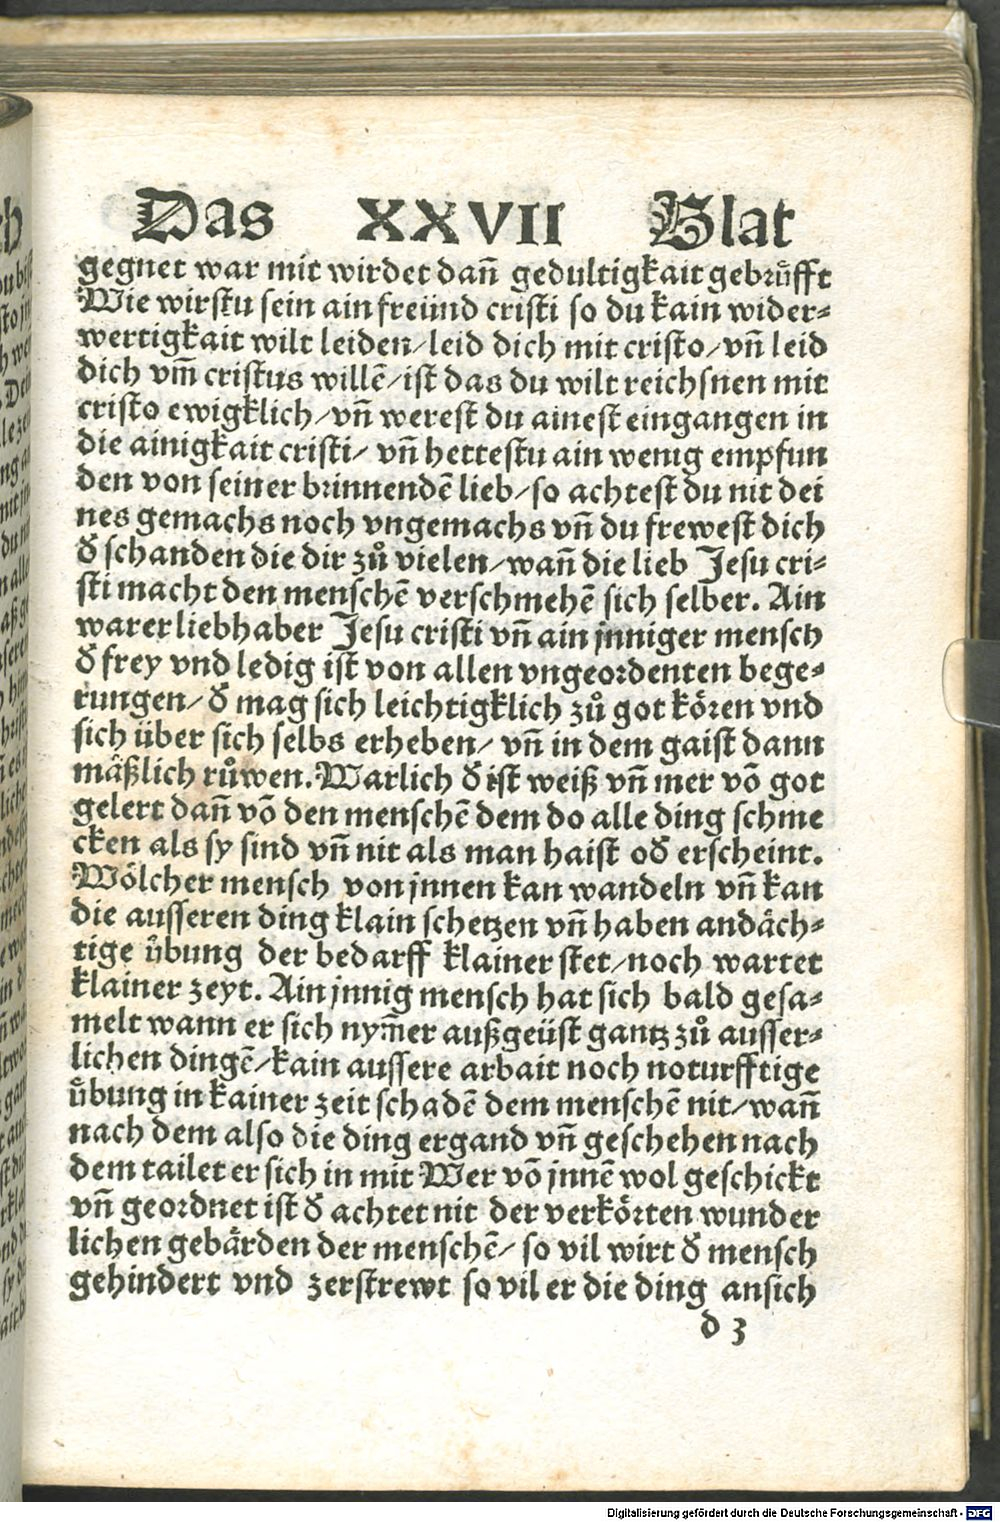 Das XXVII Blat
gegnet war mit wirdet dañ gedultigkait gebrüfft
Wie wirstu sein ain freünd cristi so du kain wider⸗
wertigkait wilt leiden/leid dich mit cristo/vñ leid
dich vm̃ cristus willẽ/ist das du wilt reichsnen mit
cristo ewigklich/vñ werest du ainest eingangen in
die ainigkait cristi/ vñ hettestu ain wenig empfun
den von seiner brinnendẽ lieb/so achtest du nit dei
nes gemachs noch vngemachs vñ du frewest dich
ď schanden die dir zů vielen/wañ die lieb Jesu cri⸗
sti macht den menschẽ verschmehẽ sich selber. Ain
warer liebhaber Jesu cristi vñ ain jnniger mensch
ď frey vnd ledig ist von allen vngeordenten bege⸗
rungen/ ď mag sich leichtigklich zů got kören vnd
sich über sich selbs erheben/ vñ in dem gaist dann
mäßlich růwen. Warlich ď ist weiß vñ mer võ got
gelert dañ võ den menschẽ dem do alle ding schme
cken als sy sind vñ nit als man haist oď erscheint.
Wölcher mensch von jnnen kan wandeln vñ kan
die ausseren ding klain schetzen vñ haben andäch⸗
tige übung der bedarff klainer stet/noch wartet
klainer zeyt. Ain jnnig mensch hat sich bald gesa⸗
melt wann er sich nym̃er außgeüst gantz zů ausser⸗
lichen dingẽ/kain aussere arbait noch noturfftige
übung in kainer zeit schadẽ dem menschẽ nit/wañ
nach dem also die ding ergand vñ geschehen nach
dem tailet er sich in mit Wer võ jnnẽ wol geschickt
vñ geordnet ist ď achtet nit der verkörten wunder
lichen gebärden der menschẽ/ so vil wirt ď mensch
gehindert vnd zerstrewt so vil er die ding ansich
d 3
Digitalisierung gefördert durch die Deutsche Forschungsgemeinschaft - DFG